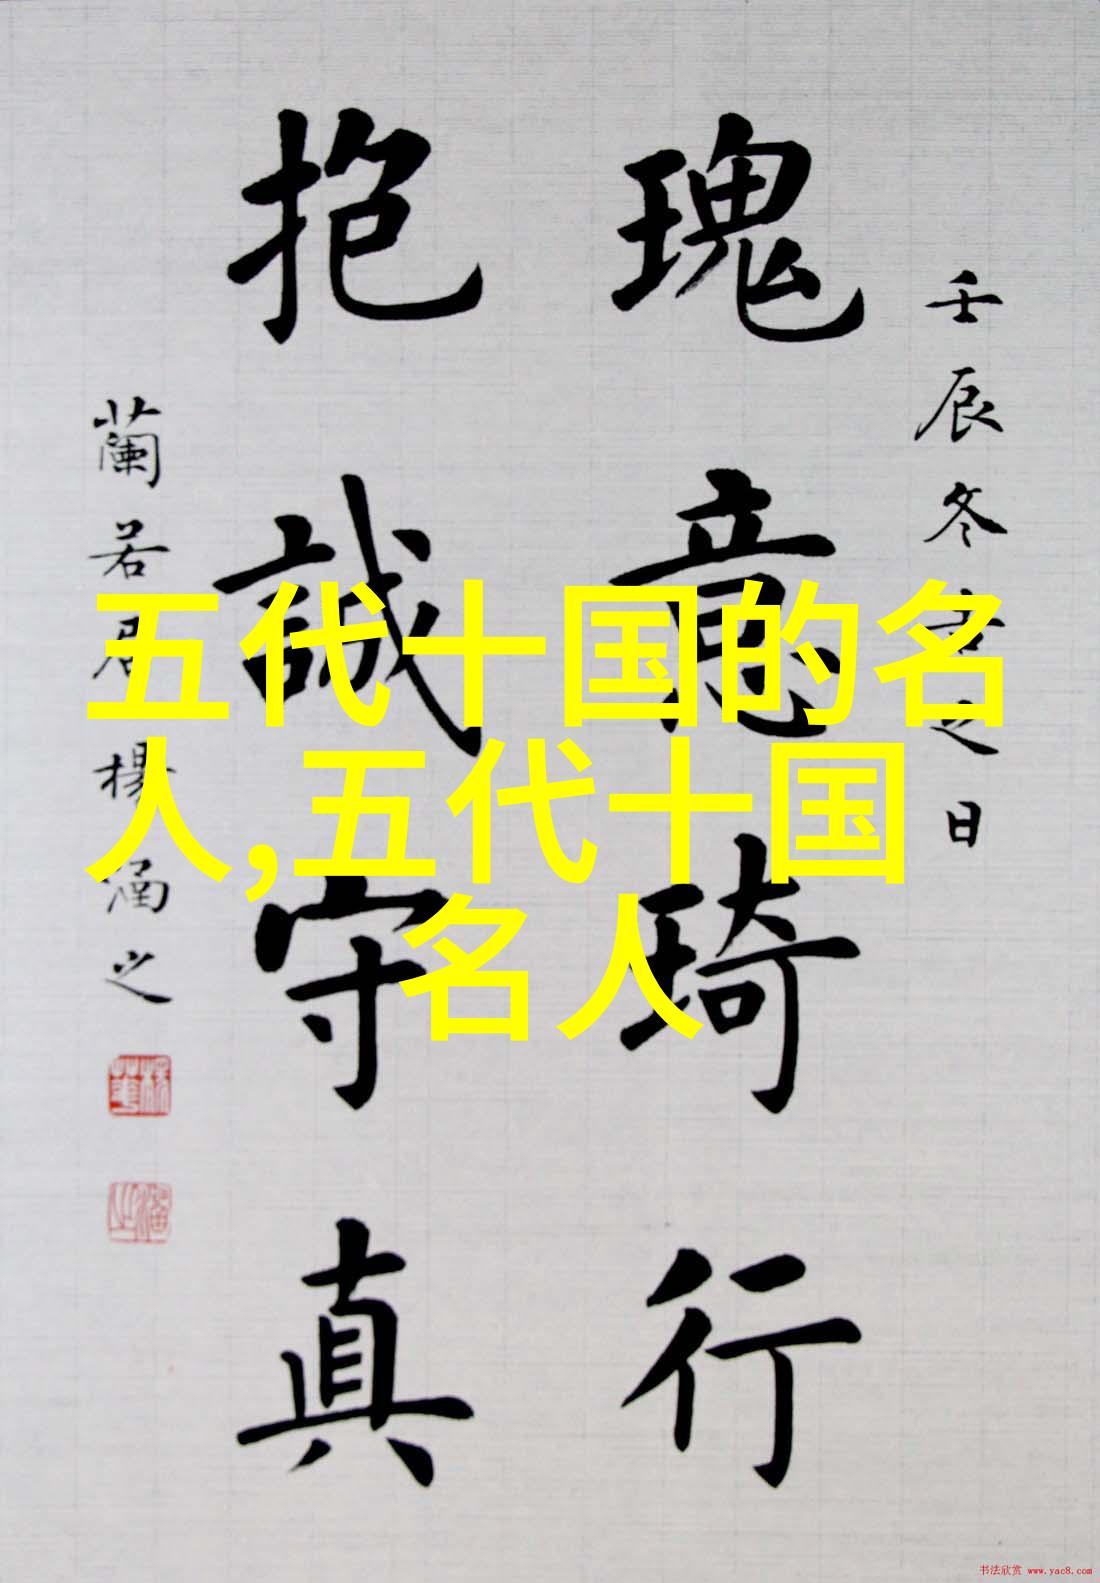 五代十国的名
人,五代十国
名人
壬辰冬吉之日
瑰意琦行
抱誠守真
蘭若居楊涵之
书法欣赏 www.yac8.com